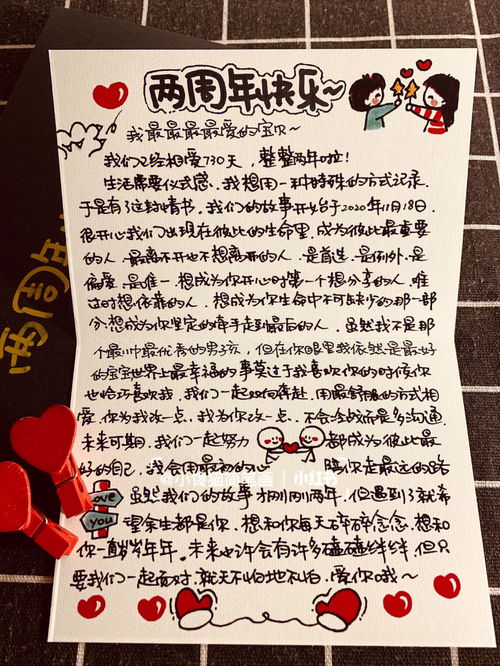 两周年快乐~
我最最最最爱的宝贝~
我们已经相爱730天，整整两年啦！
生活需要仪式感，我想用一种特殊的方式记录，
于是有了这封情书，我们的故事开始于2020年11月18日，
很开心我们出现在彼此的生命里，成为彼此最重要
的人，最离不开也不想离开的人，是首选，是例外，是
偏爱，是唯一，想成为你开心时第一个想分享的人，难
过时想依靠的人，想成为你生命中不可缺少的那一部
分，想成为你坚定的牵手走到最后的人，虽然我不是那
个最帅最优秀的男孩，但在你眼里我依然是最好
的宝宝世界上最幸福的事莫过于我喜欢你的时候你
也恰巧喜欢我，我们一起双向奔赴，用最舒服的方式相
爱，你为我改一点，我为你改一点，不会冷战而是多沟通，
未来可期，我们一起努力 都成为彼此最
好的自己，我会用最初的心 陪你走最远的路
@小馋猫简笔画 | 小红书
Love 虽然我们的故事才刚刚两年，但遇到了就希
you 望余生都是你，想和你每天碎碎念念，想和
你一直岁岁年年，未来也许会有许多磕磕绊绊，但只
要我们一起面对，就天不怕地不怕，爱你哦~